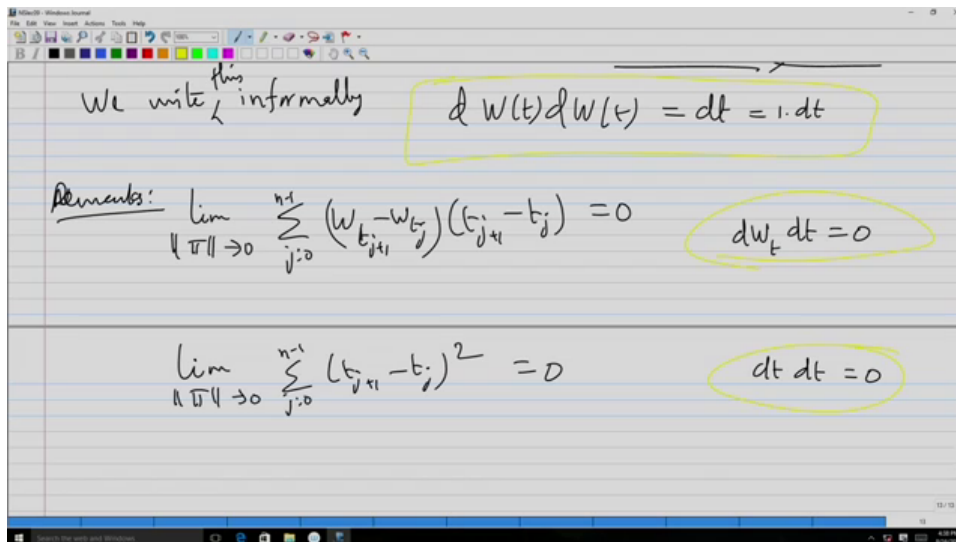 NDec09 - Windows Journal
File Edit View Insert Actions Tools Help
B I
this
We write ʌ informally d W(t) d W(t) = dt = 1. dt
Remarks: lim ||π||→0 n-1 Σ j=0 (W_{t_{j+1}} - W_{t_j}) (t_{j+1} - t_j) = 0 dW_t dt = 0
lim ||π||→0 n-1 Σ j=0 (t_{j+1} - t_j)^2 = 0 dt dt = 0
13 / 13
13
Search the web and Windows